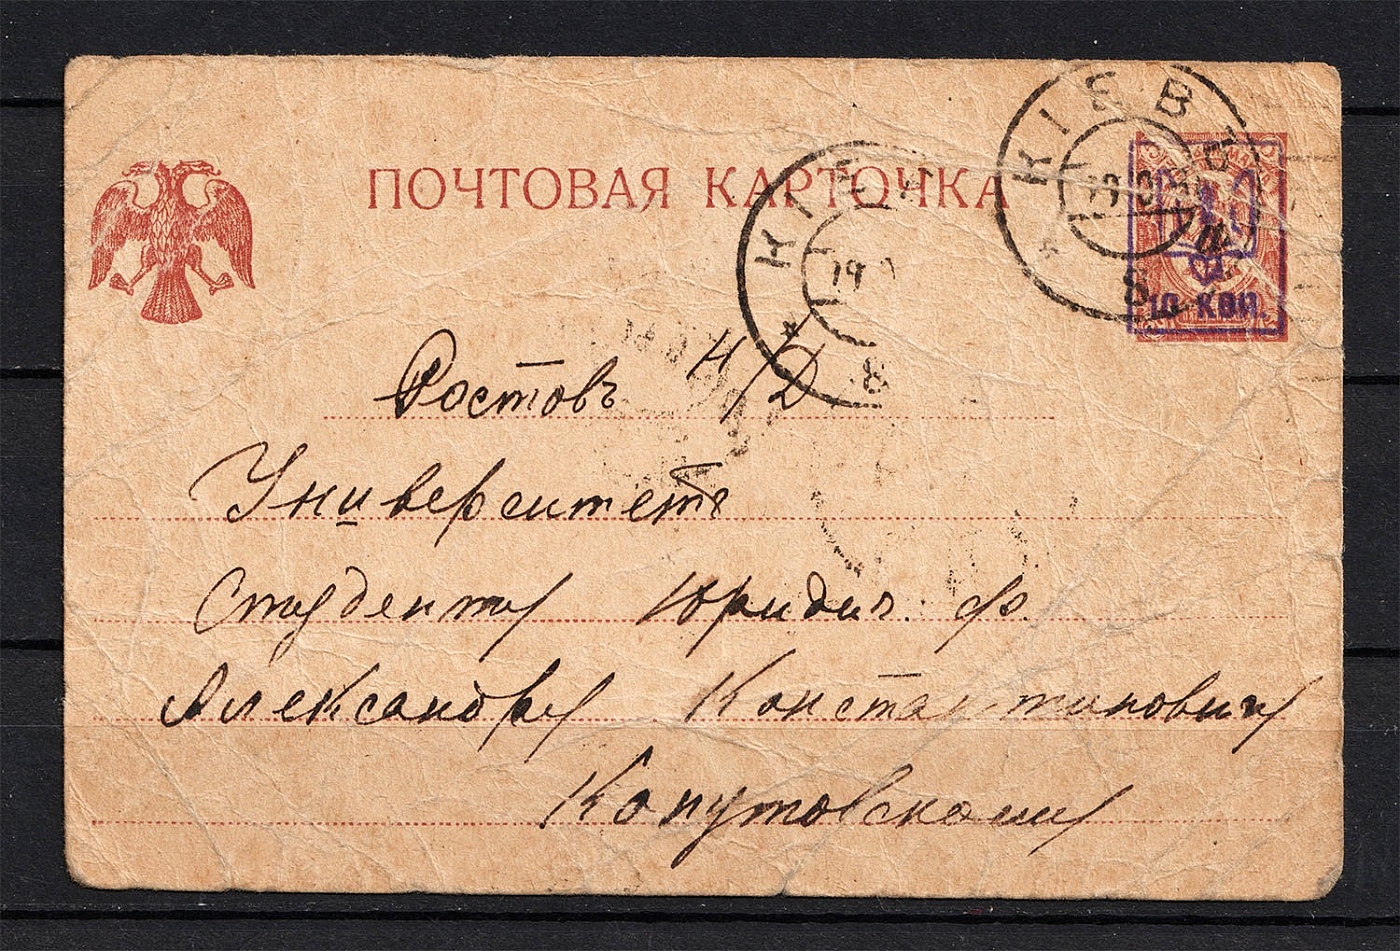 ПОЧТОВАЯ КАРТОЧКА
КІЕВ
19
8
КІЕВЪ
19
8
10 коп.
Ростовъ н/Д
Университетъ
Студенту Юридич. ф.
Александру Константиновичу
Копутовскому